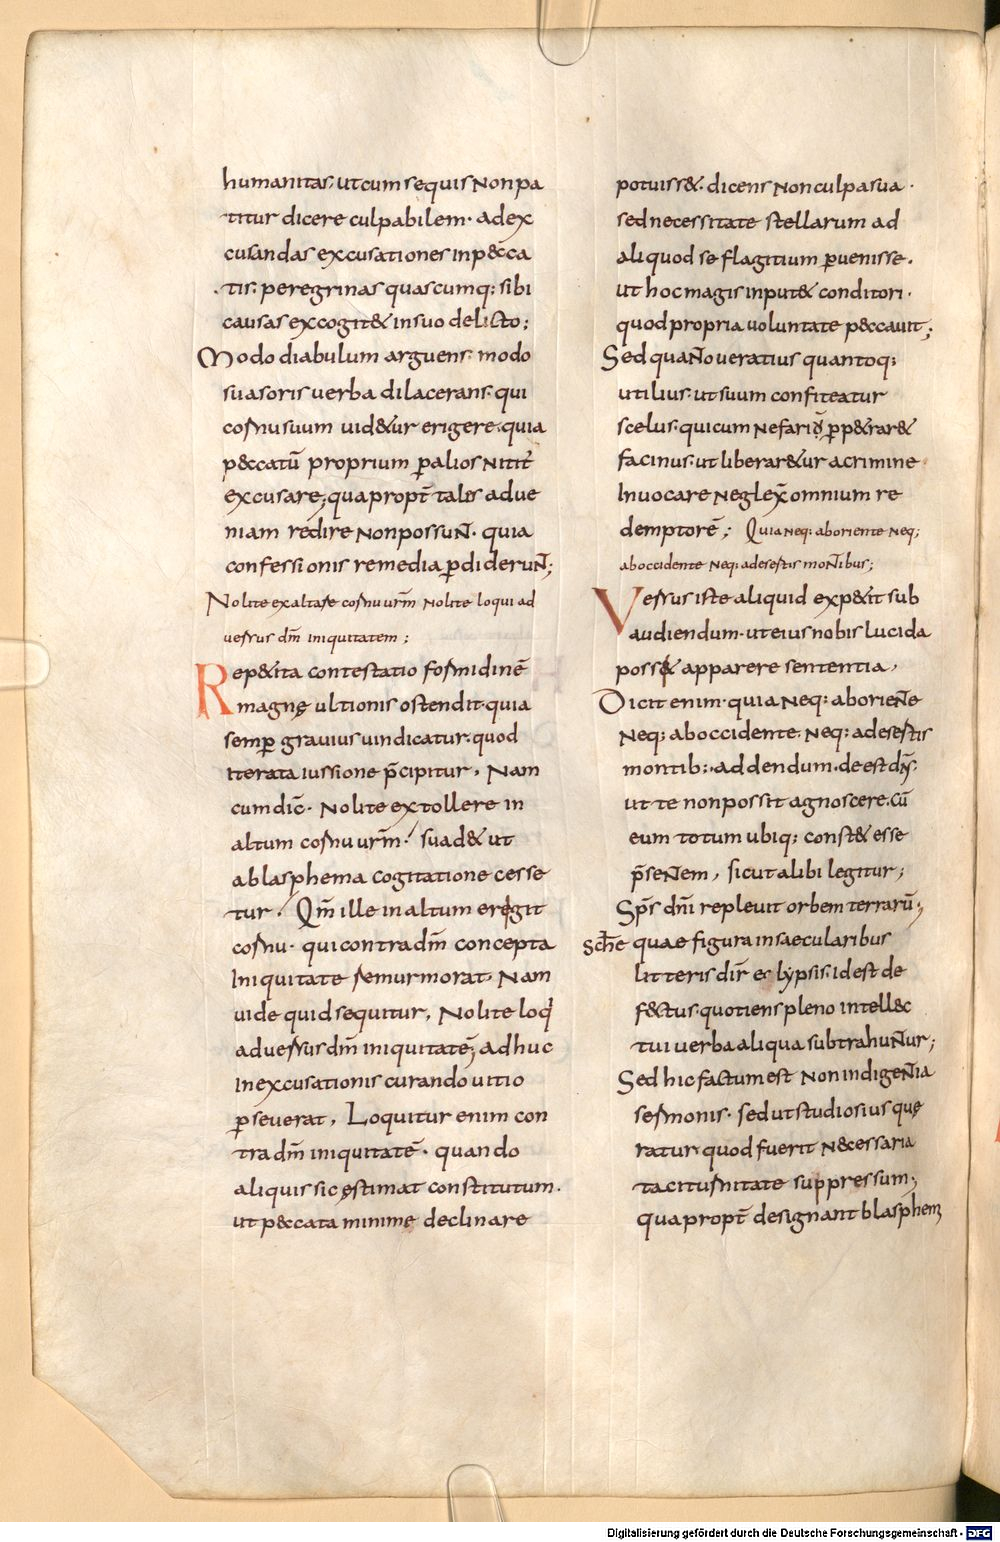 humanitas; ut cum sequis non pa
titur dicere culpabilem· ad ex
cusandas excusationes in pecca
tis; peregrinas quascumq; sibi
causas excogit& in suo delicto;
Modo diabulum arguens· modo
suasoris verba dilacerans· qui
cornu suum uid&ur erigere· quia
p&ccatū proprium ꝑ alios nitit̄
excusare; quapropt̄ tales ad ue
niam redire non possun̄· quia
confessionis remedia ꝑdiderun̄;
Nolite exaltare cornu urm̄ nolite loqui ad
uersus dm̄ iniquitatem;
Rep&ita contestatio formidinē
magnę ultionis ostendit· quia
semꝑ grauius uindicatur· quod
iterata iussione p̄cipitur, Nam
cum dic̄· nolite extollere in
altum cornu urm̄· suad& ut
a blasphema cogitatione cesse
tur· Qm̄ ille in altum eregit
cornu· qui contra dm̄ concepta
iniquitate remurmorat· Nam
uide quid sequitur, Nolite loq
aduersus dm̄ iniquitatē; adhuc
in excusationis curando uitio
ꝑseuerat, Loquitur enim con
tra dm̄ iniquitatē· quando
aliquis sic ęstimat constitutum·
ut p&ccata minimę declinare
potuiss&· dicens non culpa sua·
sed necessitate stellarum ad
aliquod se flagitium ꝑuenisse·
ut hoc magis input& conditori·
quod propria uoluntate p&ccauit;
Sed quan̄o ueratius quantoq;
utilius· ut suum confiteatur
scelus· qui cum nefariū ꝑp&rar&
facinus· ut liberar&ur a crimine
Inuocare neglex̄ omnium re
demptorē; Quia neq; ab oriente neq;
ab occidente neq; a desertis mon̄ibus;
Versus iste aliquid exp&it sub
audiendum· ut eius nobis lucida
poss& apparere sententia,
Dicit enim· quia neq; ab orien̄e
neq; ab occidente· neq; a desertis
montib;· addendum· de est dn̄s·
ut te non possit agnoscere· cū
eum totum ubiq; const& esse
p̄sen̄em, sicut alibi legitur;
Sps̄ dn̄i repleuit orbem terrarū;
sch̄e quae figura in saecularibus
litteris dir̄ eclypsis· id est de
f&ctus· quotiens pleno intellec
tui uerba aliqua subtrahun̄ur;
Sed hic factum est non indigen̄ia
sermonis· sed ut studiosius quę
ratur· quod fuerit n&cessaria
taciturnitate suppressum;
quapropt̄ designant blasphem
Digitalisierung gefördert durch die Deutsche Forschungsgemeinschaft - DFG